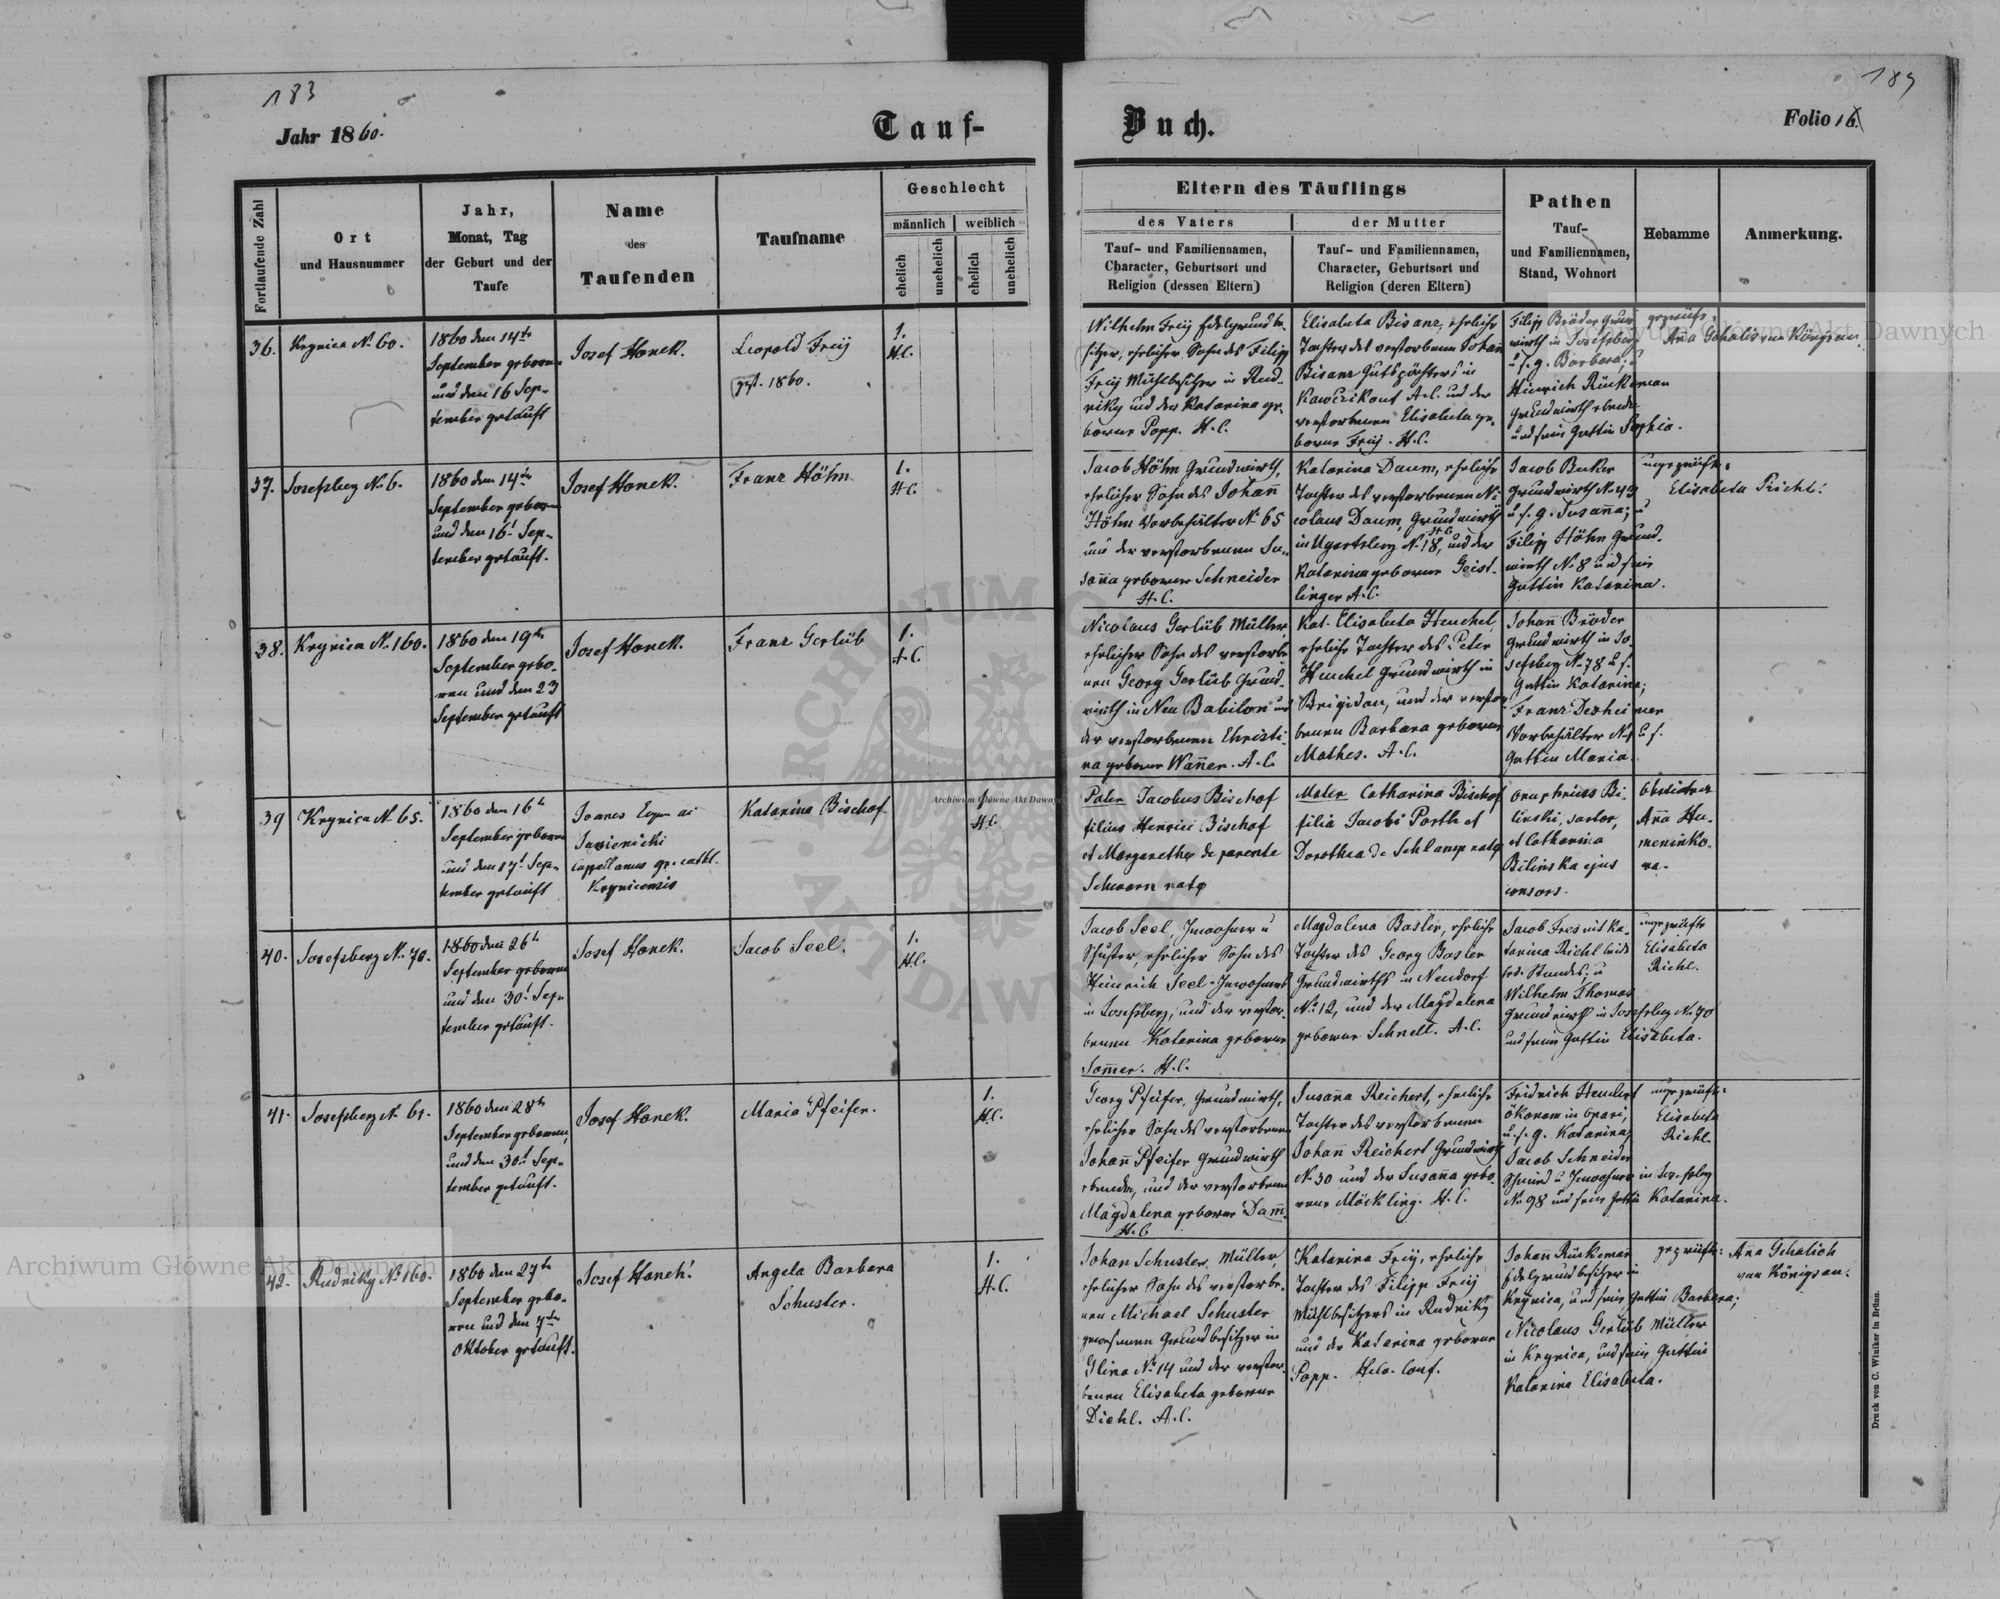 183
189
Jahr 1860.
Tauf-
Buch.
Folio 16
Fortlaufende Zahl
Ort
und Hausnummer
Jahr,
Monat, Tag
der Geburt und der
Taufe
Name
des
Taufenden
Taufname
Geschlecht
männlich
weiblich
ehelich
unehelich
ehelich
unehelich
Eltern des Täuflings
des Vaters
Tauf- und Familiennamen,
Character, Geburtsort und
Religion (dessen Eltern)
der Mutter
Tauf- und Familiennamen,
Character, Geburtsort und
Religion (deren Eltern)
Pathen
Tauf-
und Familiennamen,
Stand, Wohnort
Hebamme
Anmerkung.
36.
Krynica No 60.
1860 den 14ten
September geboren
und den 16 Sep-
tember getauft
Josef Hanek.
Leopold Freÿ
gest. 1860.
1.
H.C.
Wilhelm Freÿ Edelgrundbe-
sitzer, ehelicher Sohn des Filipp
Freÿ Mühlbesitzer in Rud-
riky und der Katarina ge-
borne Popp. H.C.
Elisabeta Bisanz, eheliche
Tochter des verstorbenen Johann
Bisanz Gutspächters in
A.C. und der
verstorbenen Elisabeta ge-
borne Freÿ. H.C.
Filipp Bröder Grund-
wirth in Josefsberg
u. s. g. Barbara; u
Heinrich Rückeman
Grundwirth ebenda
und seine Gattin Sophia.
geprüfte:
Aña Gehalich von Königsau
37.
Josefsberg No 6.
1860 den 14ten
September geboren
und den 16t Sep-
tember getauft.
Josef Hanek.
Franz Höhn
1.
H.C.
Jacob Höhn Grundwirth,
ehelicher Sohn des Johann
Höhn Vorbehälter No 65
und der verstorbenen Su-
sanna geborner Schneider
H.C.
Katarina Daum, eheliche
Tochter des verstorbenen Ni-
colaus Daum, Grundwirth
in Ugartsberg No 18, H.C. und der
Katarina geborner Geist-
linger A.C.
Jacob Beker
Grundwirth No 43
u. s. g. Susanna; u
Filipp Höhn Grund-
wirth No 8 und seine
Gattin Katarina.
ungeprüfte:
Elisabeta Richl.
38.
Krynica No 160.
1860 den 19ten
September gebo-
ren und den 23
September getauft
Josef Hanek.
Franz Gerlüb
1.
A.C.
Nicolaus Gerlüb Müller,
ehelicher Sohn des verstorbe-
nen Georg Gerlüb Grund-
wirth in Neu Babilon und
der verstorbenen Christi-
na geborne Wanner. A.C.
Kat. Elisabeta Heuchel
eheliche Tochter des Peter
Heuchel Grundwirth in
Brigidau, und der verstor-
benen Barbara geborne
Mathes. A.C.
Johann Bröder
Grundwirth in Jo-
sefsberg No 78 u. s.
Gattin Katarina;
Franz Dexheimer
Vorbehälter No 1 u. s.
Gattin Maria.
39
Krynica No 65.
1860 den 16t
September geboren
und den 17t Sep-
tember getauft
Joanes
Capellanus gr. cath.
Krynicensis
Katarina Bischof
1
H.C.
Pater Jacobus Bischof
filius Henrici Bischof
et Margarethae de parente
Schwarn natae
Mater Catharina Bischof
filia Jacobi Porth et
Dorothea de Schlamp natae
Onuphrius Bi-
linski, sartor,
et Catharina
Bilinska ejus
consors.
Obstetrix
Aña Hu-
meninko-
wa.
40.
Josefsberg No 70.
1860 den 26t
September geboren
und den 30t Sep-
tember getauft.
Josef Hanek.
Jacob Seel.
1.
H.C.
Jacob Seel, Inwohner u
Schuster, ehelicher Sohn des
Heinrich Seel Inwohners
in Josefsberg, und der verstor-
benen Katarina geborne
Sommer. H.C.
Magdalena Basler, eheliche
Tochter des Georg Basler
Grundwirths in Neudorf
No 12, und der Magdalena
geborne Schnell. A.C.
Jacob Fres mit Ka-
tarina Richl beide
led. Standes; u
Wilhelm Thomas
Grundwirth in Josefsberg No 70
und seine Gattin Elisabeta.
ungeprüfte
Elisabeta
Richl.
41.
Josefsberg No 61.
1860 den 28t
September geboren,
und den 30t Sep-
tember getauft.
Josef Hanek.
Maria Pfeifer.
1.
H.C.
Georg Pfeifer, Grundwirth,
ehelicher Sohn des verstorbenen
Johann Pfeifer Grundwirth
ebenda, und der verstorbenen
Magdalena geborne Damm.
H.C.
Susanna Reichert, eheliche
Tochter des verstorbenen
Johann Reichert Grundwirth
No 30 und der Susanna gebo-
rene Möckling. H.C.
Fridrich
Ökonom in Opari,
u. s. g. Katarina;
Jacob Schneider
Schmid u Inwohner in Josefsberg
No 98 und seine Gattin Katarina.
ungeprüfte:
Elisabeta
Richl.
42.
Rudniky No 160.
1860 den 27t
September gebo-
ren und den 7ten
Oktober getauft.
Josef Hanek.
Angela Barbara
Schuster.
1.
H.C.
Johan Schuster, Müller,
ehelicher Sohn des verstorbe-
nen Michael Schuster
gewesenen Grundbesitzer in
Glina No 14 und der verstor-
benen Elisabeta geborne
Diehl. A.C.
Katarina Freÿ, eheliche
Tochter des Filipp Freÿ
Mühlbesitzers in Rudniky
und der Katarina geborne
Popp. Helv. Conf.
Johann Rückeman
Edelgrundbesitzer in
Krynica, und seine Gattin Barbara;
Nicolaus Gerlüb Müller
in Krynica, und seine Gattin
Katarina Elisabeta.
geprüfte:
Aña Gehalich
von Königsau.
Druck von C. Winiker in Brünn.
Archiwum Główne Akt Dawnych
Archiwum Główne Akt Dawnych
Archiwum Główne Akt Dawnych
ARCHIWUM GŁÓWNE AKT DAWNYCH